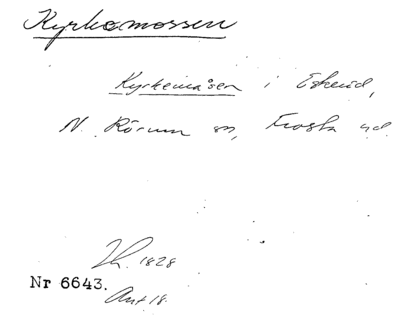 Kyrkomossen
Kyrkemåsen i Eskeröd,
N. Rörum sn, Frosta hd.
Th. 1828
Nr 6643.
Ant 18.